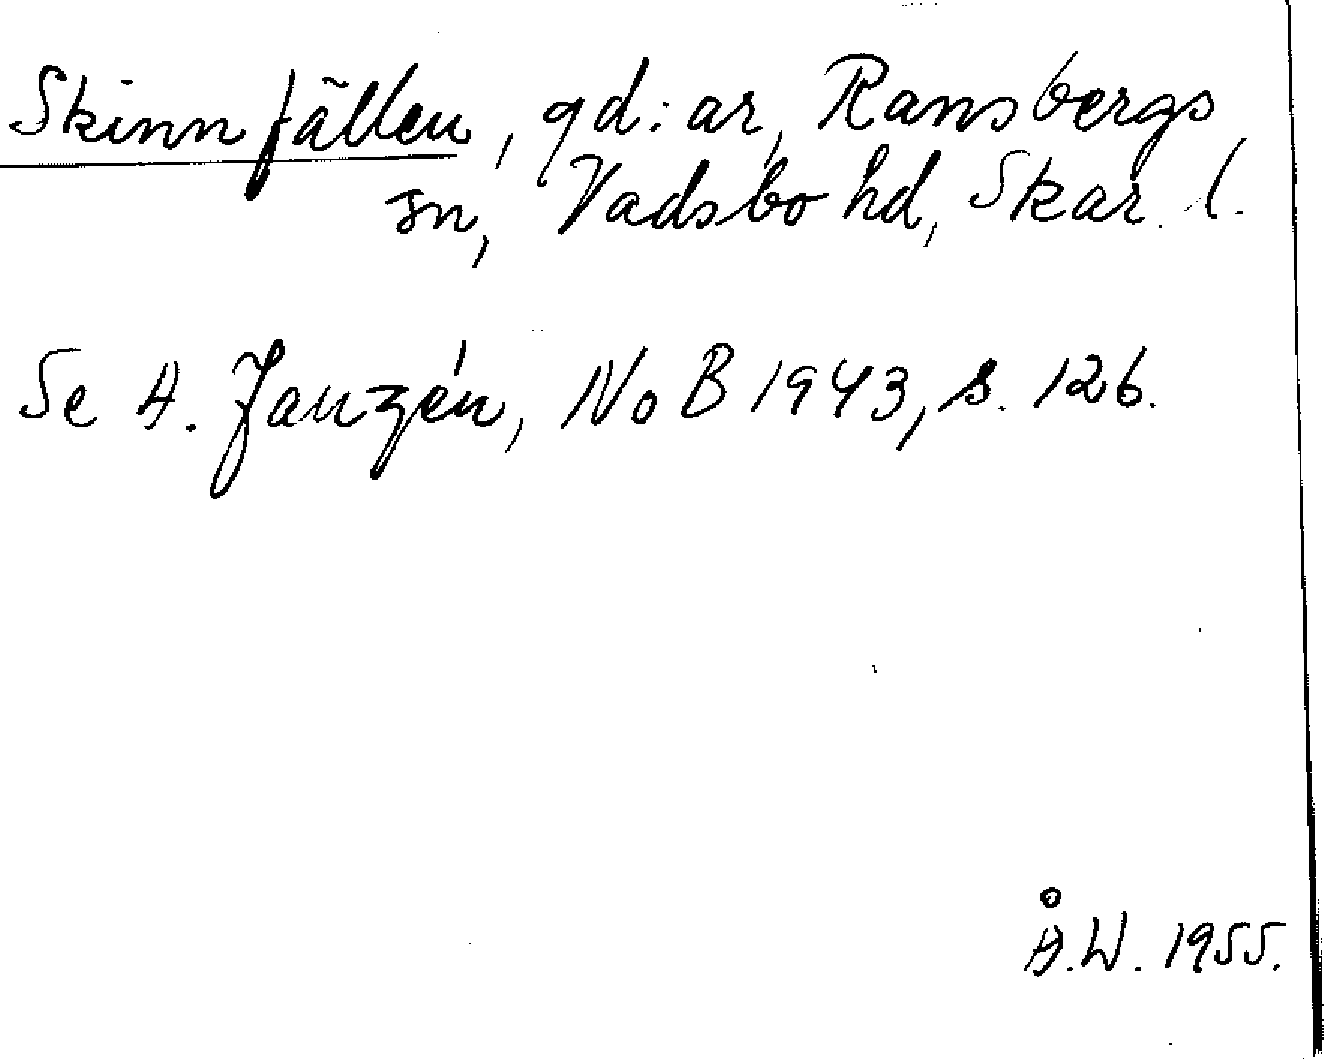 Skinnfällen, gd:ar, Ransbergs
sn, Vadsbo hd, Skar. l.
Se A. Janzén, NoB 1943, s. 126.
Å.W. 1955.